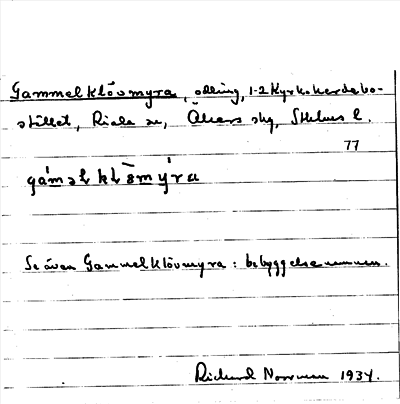 Gammelklövmyra, odling, 1-2 Kyrkoherdebo-
stället, Riala sn, Åkers skg, Sthlms l.
77
gám əl kl ö̀ m ý r a
Se även Gammelklövmyra: bebyggelsenamnen.
Richard 1934.